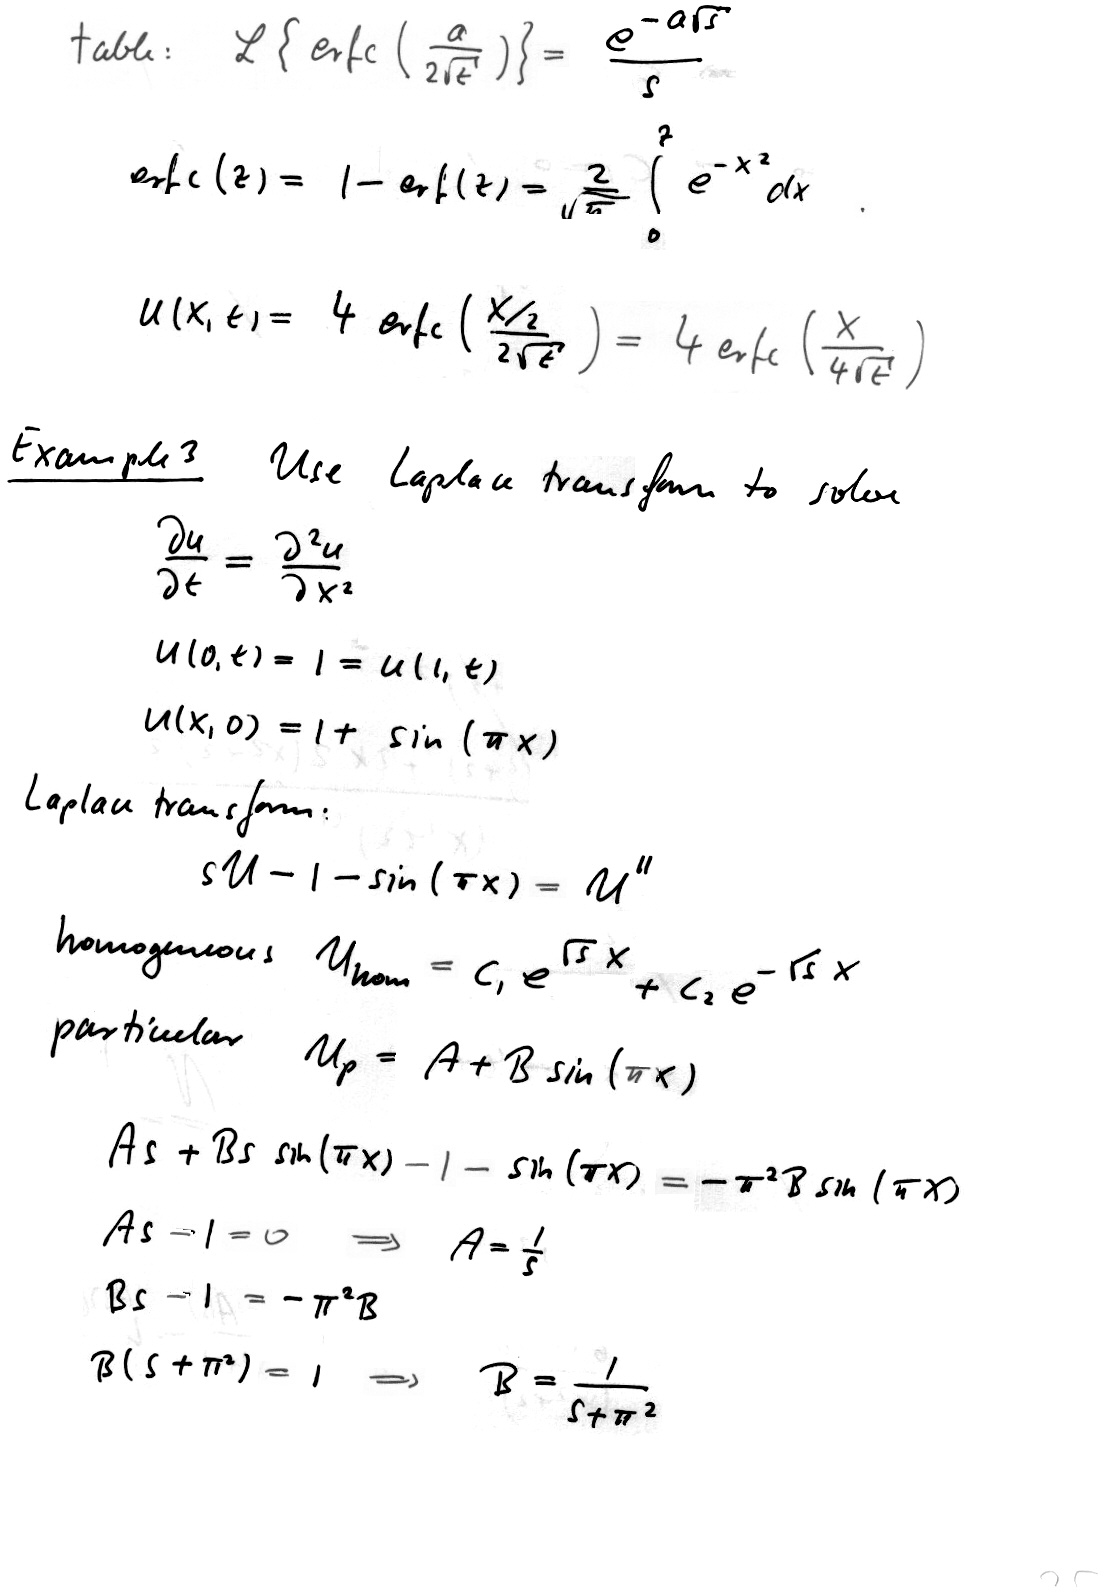 table: ℒ{erfc(a/(2√t))} = e^(-a√s)/s
erfc(z) = 1 - erf(z) = 2/√π ∫₀^z e^(-x²) dx
u(x,t) = 4 erfc((x/2)/(2√t)) = 4 erfc(x/(4√t))
Example 3 Use Laplace transform to solve
∂u/∂t = ∂²u/∂x²
u(0,t) = 1 = u(1,t)
u(x,0) = 1 + sin(πx)
Laplace transform:
sU - 1 - sin(πx) = U''
homogeneous U_hom = c₁ e^(√s x) + c₂ e^(-√s x)
particular U_p = A + B sin(πx)
As + Bs sin(πx) - 1 - sin(πx) = -π²B sin(πx)
As - 1 = 0 ⟹ A = 1/s
Bs - 1 = -π²B
B(s + π²) = 1 ⟹ B = 1/(s + π²)